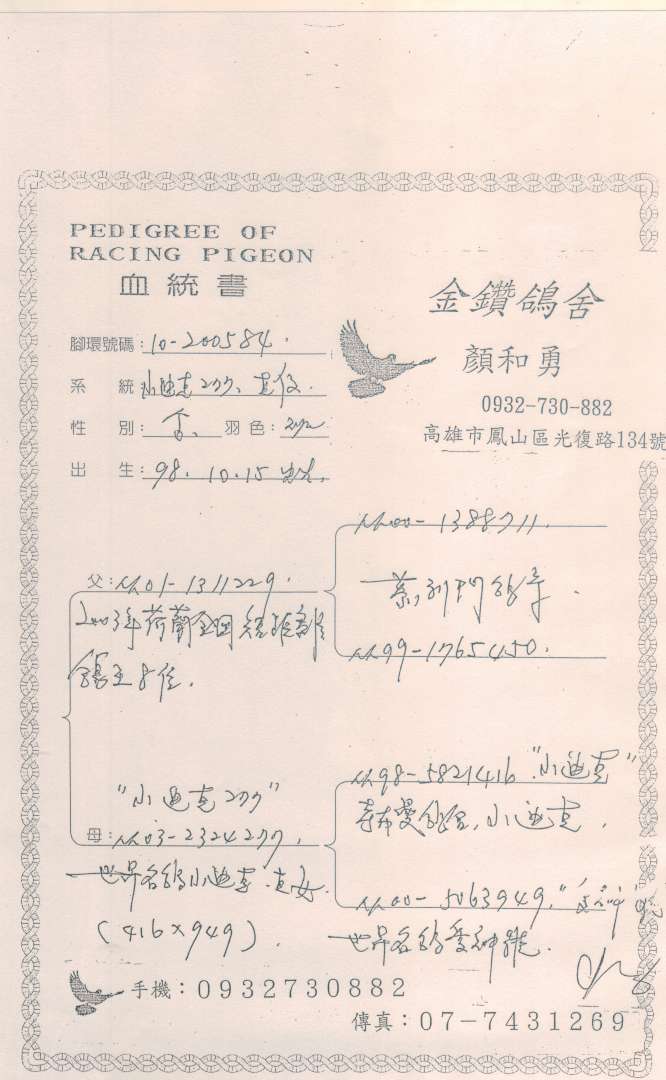 PEDIGREE OF
RACING PIGEON
血統書
金鑽鴿舍
顏和勇
0932-730-882
高雄市鳳山區光復路134號
腳環號碼：10-200584.
系統 小迪克277、直
性別： 羽色：
出生：98.10.15 出生.
00-1388711.
父：01-1311229.
2003年荷蘭全國
鴿王8位.
99-1765450.
"小迪克277"
母：03-2324277,
世界名鴿小迪克 直女.
(416×949).
98-5821416 "小迪克"
小迪克.
00-5063949,"愛神"號
世界名鴿愛神號.
手機：0932730882
傳真：07-7431269